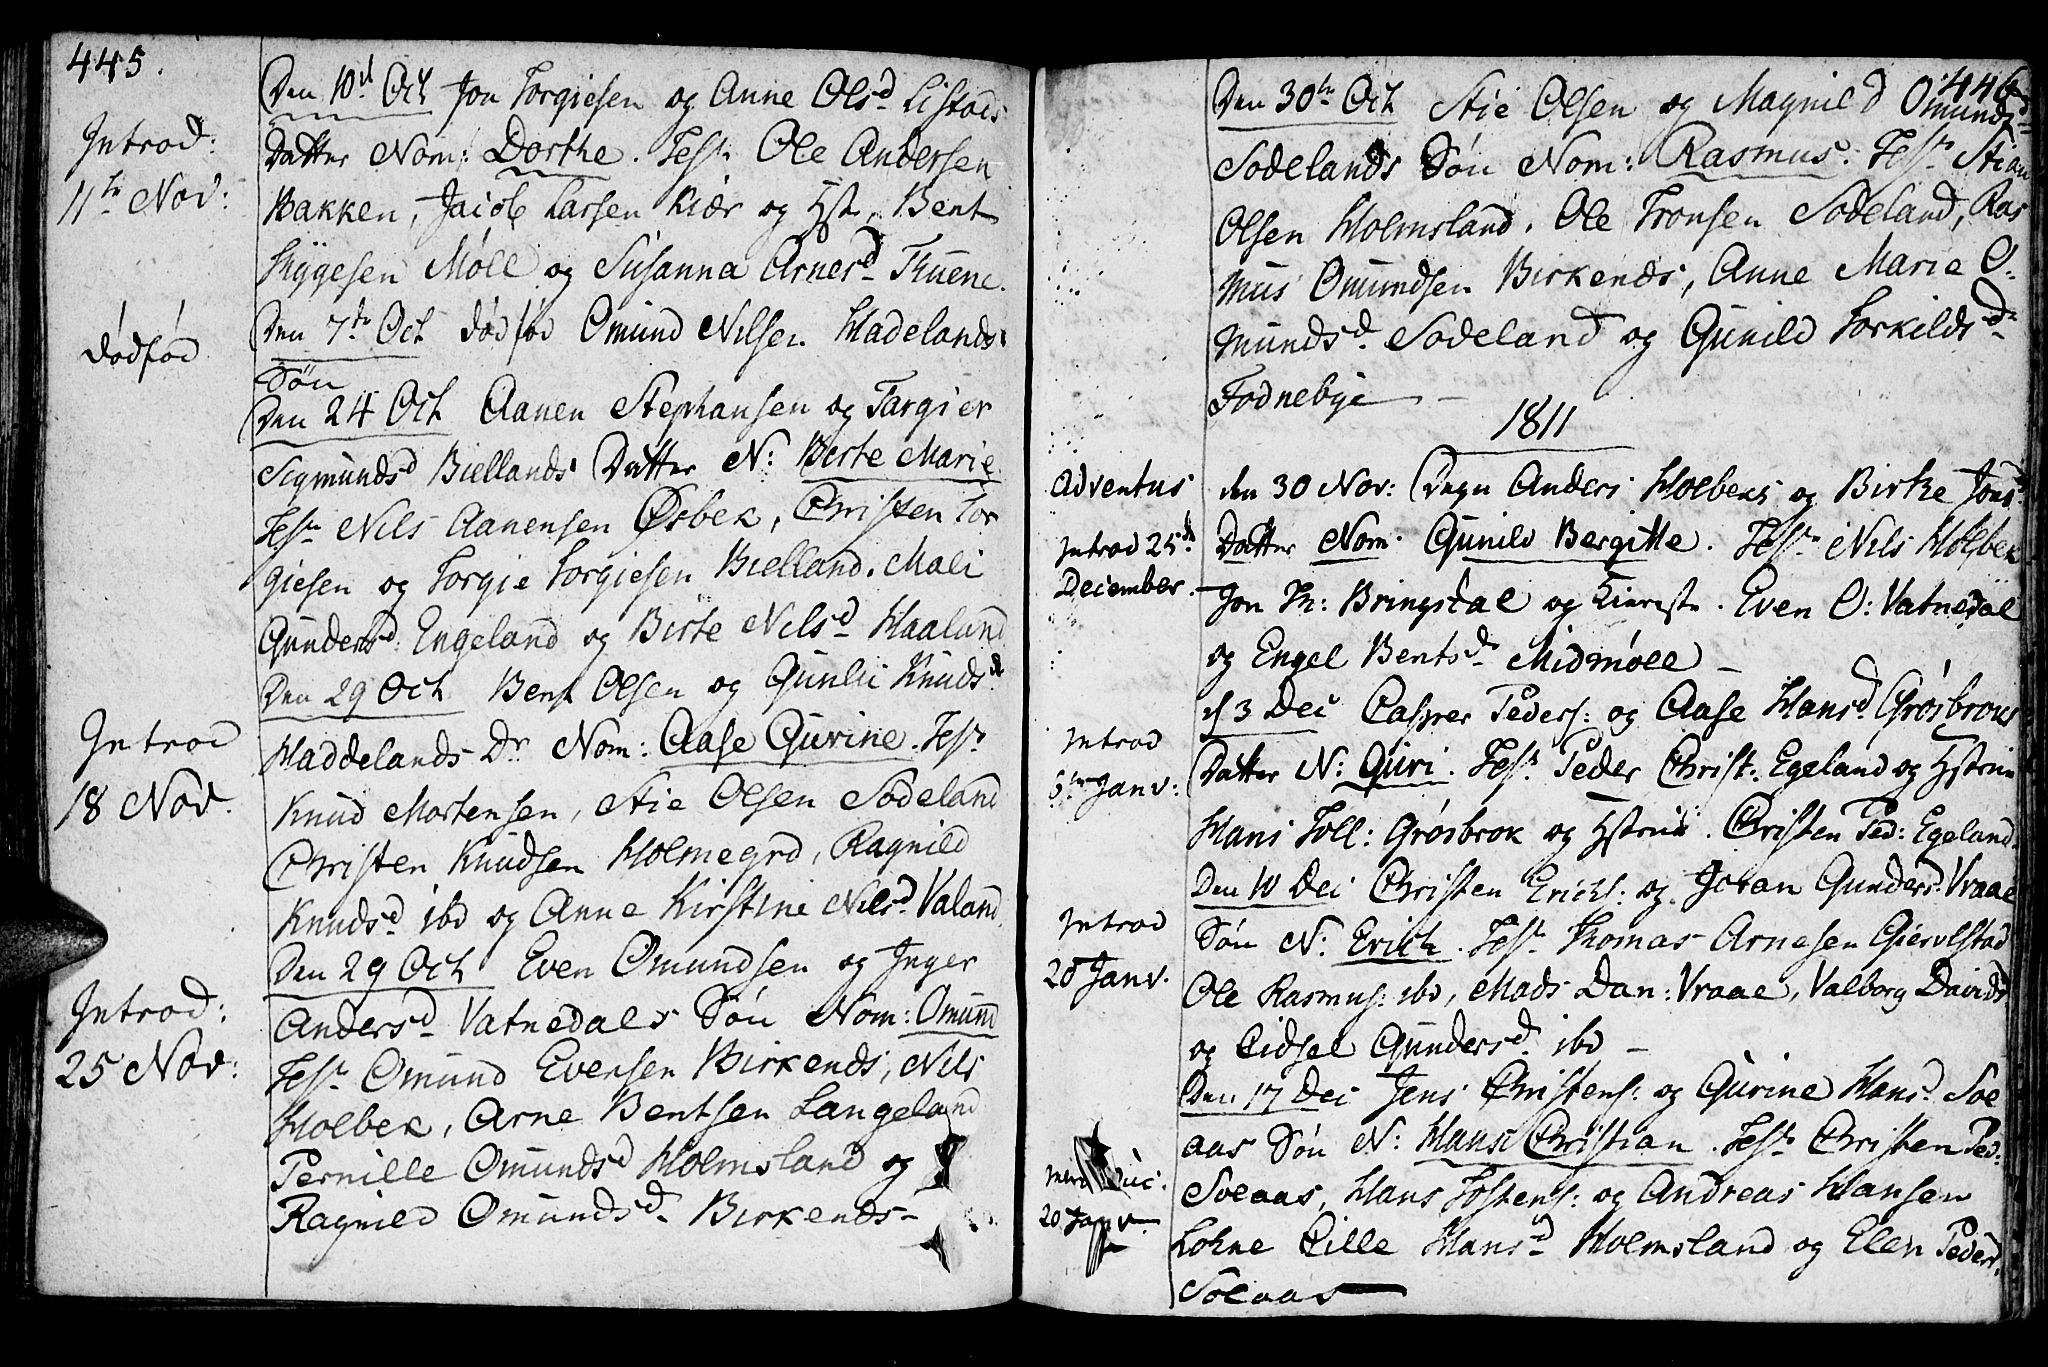 445.
Den 10d Oct Jon Torgiesen og Anne Olsd Listads
Introd:
Datter Nom: Dorthe. Tesr Ole Andersen
11te Nov:
Bakken, Jacob Larsen Kiær og Hst, Bent
Trygesen Møll og Susanna Arnesd Thuene.
Den 7de Oct dødfød Omund Nilsen Hadelands
dødfød
Søn
Den 24 Oct Aanen Stephansen og Targier
Sigmundsd Biellands Datter N: Berte Marie
Tesr Nils Aanensen Øsbek, Christen Tor
giesen og Torgie Torgiesen Bielland. Mali
Gundersd: Engeland og Birte Nilsd Haaland
Den 29 Oct Bent Olsen og Gunlii Knudsd
Introd
Haddelands Dr Nom: Aase Gurine. Tesr
18 Nov.
Knud Mortensen, Stie Olsen Sodeland
Christen Knudsen Holmegrd, Ragnild
Knudsd ibd og Anne Kirstine Nilsd Valand
Den 29 Oct Even Omundsen og Inger
Introd:
Andersd Vatnedals Søn Nom: Omund
25 Nov:
Tesr Omund Evensen Birkenes, Nils
Holbek, Arne Bentsen Langeland
Pernille Omundsd Holmsland og
Ragnild Omundsd Birkends
446
Den 30te Oct Stie Olsen og Magnild Omunds
Sodelands Søn Nom: Rasmus. Tesr Stian
Olsen Holmsland. Ole Tronsen Sodeland, Ras
mus Omundsen Birkends, Anne Marie O.
mundsd Sodeland og Gunild Torkildsd
Fodnebye
1811
Adventus
den 30 Nov: Degn Anders Holbeks og Birthe Jonsd
Introd 25d
Datter Nom. Gunild Bergitte. Tesr Nils Holbek
December.
Jon Th: Bringsdal og Kierest. Even O: Vatnedal
og Engel Bentsd Midmøll
d 3 Dec Casper Peders: og Aase Hansd Grøsbroks
Introd
Datter N: Guri. Tesr Peder Christ: Egeland og Hstrue
6te Janv:
Hans Toll: Grøsbrok og Hstrue. Christen Ped: Egeland
Den 10 Dec Christen Erichs: og Joran Gundersd Vraae
Introd
Søn N: Erich. Tesr Thomas Arnesen Giervlstad
20 Janv.
Ole Rasmus: ibd, Mads Dan: Vraae, Valborg Davids
og Lidsel Gundersd ibd
Den 17 Dec Jens Christens: og Gurine Hansd Soe
aas Søn N: Hans Christian. Tesr Christen Ped:
Soeaas, Hans Tostens: og Andreas Hansen
20 Janv
Lohne Lille Hansd Holmsland og Elen Pedersd
Soeaas